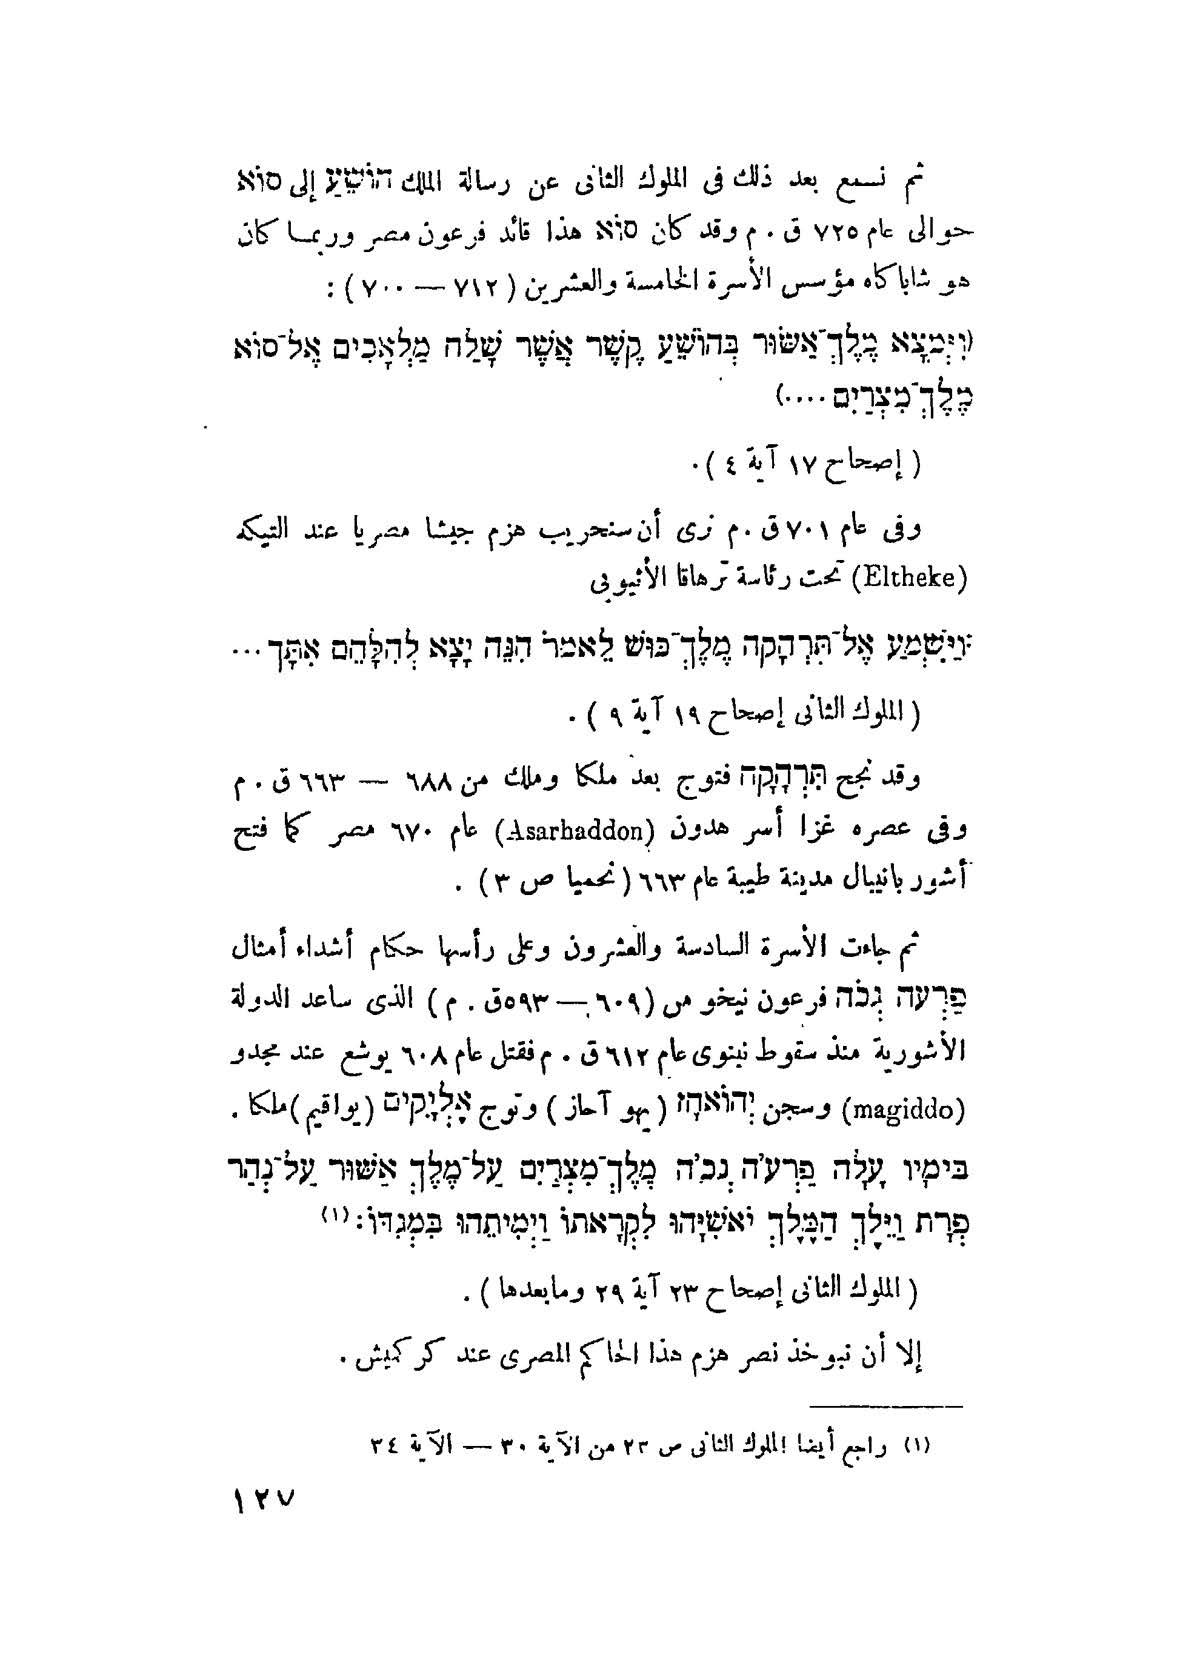 ثم نسمع بعد ذلك فى الملوك الثانى عن رسالة الملك הוֹשֵׁעַ إلى סוֹא
حوالى عام ٧٢٥ ق . م وقد كان סוֹא هذا قائد فرعون مصر وربما كان
هو شاباكاه مؤسس الأسرة الخامسة والعشرين ( ٧١٢ — ٧٠٠ ) :
(וַיִּמְצָא מֶלֶךְ־אַשּׁוּר בְּהוֹשֵׁעַ קֶשֶׁר אֲשֶׁר שָׁלַח מַלְאָכִים אֶל־סוֹא
מֶלֶךְ־מִצְרַיִם ....)
( إصحاح ١٧ آية ٤ ) .
وفى عام ٧٠١ ق . م نرى أن سنحريب هزم جيشا مصريا عند التيكه
(Eltheke) تحت رئاسة ترهاقا الأثيوبى
וַיִּשְׁמַע אֶל־תִּרְהָקה מֶלֶךְ־כּוּשׁ לֵאמֹר הִנֵּה יָצָא לְהִלָּחֵם אִתָּךְ ...
( الملوك الثانى إصحاح ١٩ آية ٩ ) .
وقد نجح תִּרְהָקָה فتوج بعد ملكا وملك من ٦٨٨ — ٦٦٣ ق . م
وفى عصره غزا أسر هدون (Asarhaddon) عام ٦٧٠ مصر كما فتح
أشور بانيبال مدينة طيبة عام ٦٦٣ ( نحميا ص ٣ ) .
ثم جاءت الأسرة السادسة والعشرون وعلى رأسها حكام أشداء أمثال
פַּרְעה נְכֹה فرعون نيخو من ( ٦٠٩ — ٥٩٣ ق . م ) الذى ساعد الدولة
الأشورية منذ سقوط نينوى عام ٦١٢ ق . م فقتل عام ٦٠٨ يوشع عند مجدو
(magiddo) وسجن יְהוֹאחָז ( يهو آحاز ) وتوج אֶלְיָקִים ( يواقيم ) ملكا .
בּימָיו עָלָה פַּרְעֹה נְכֹה מֶלֶךְ־מִצְרַיִם עַל־מֶלֶךְ אַשּׁוּר עַל־נְהַר
פְּרָת וַיֵּלֶךְ הַמֶּלֶךְ יֹאשִׁיָּהוּ לִקְרָאתוֹ וַיְמִיתֵהוּ בִּמְגִדּוֹ : (١)
( الملوك الثانى إصحاح ٢٣ آية ٢٩ ومابعدها ) .
إلا أن نبوخذ نصر هزم هذا الحاكم المصرى عند كركميش .
(١) راجع أيضا الملوك الثانى ص ٢٣ من الآية ٣٠ — الآية ٣٤
١٢٧